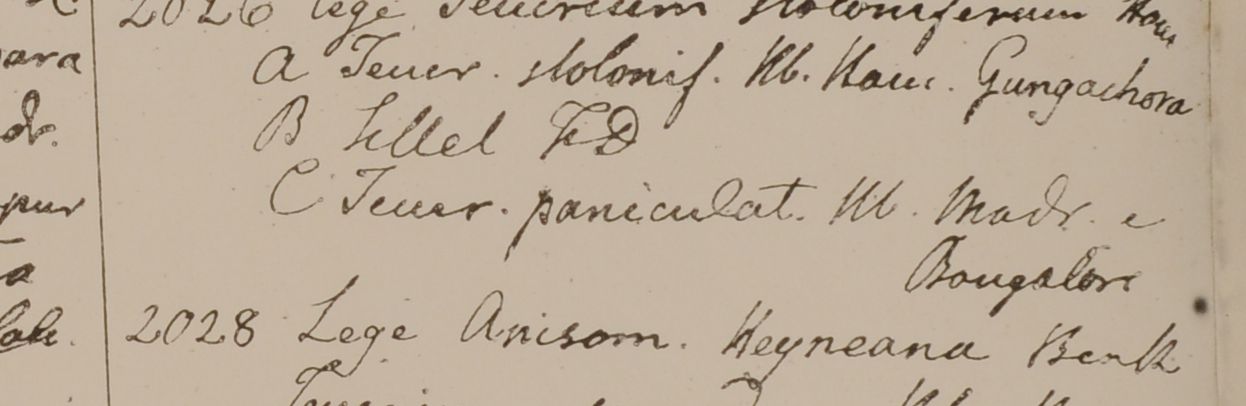 2026 lege Teucrium stoloniferum Ham
A Teucr. stolonif. Hb. Ham. Gungachora
B Sillet FD
C Teucr. paniculat. Hb. Madr. e
Bangalore
2028 Lege Anisom. Heyneana Benth
ara
dr.
pur
a